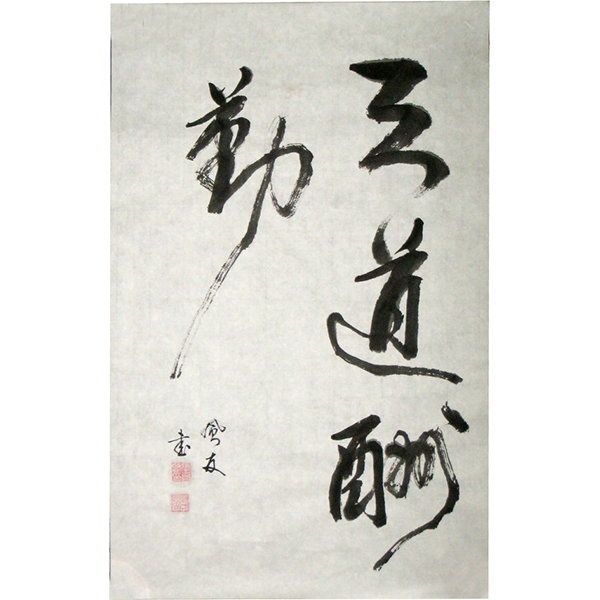 天道酬
勤
鳳友
書